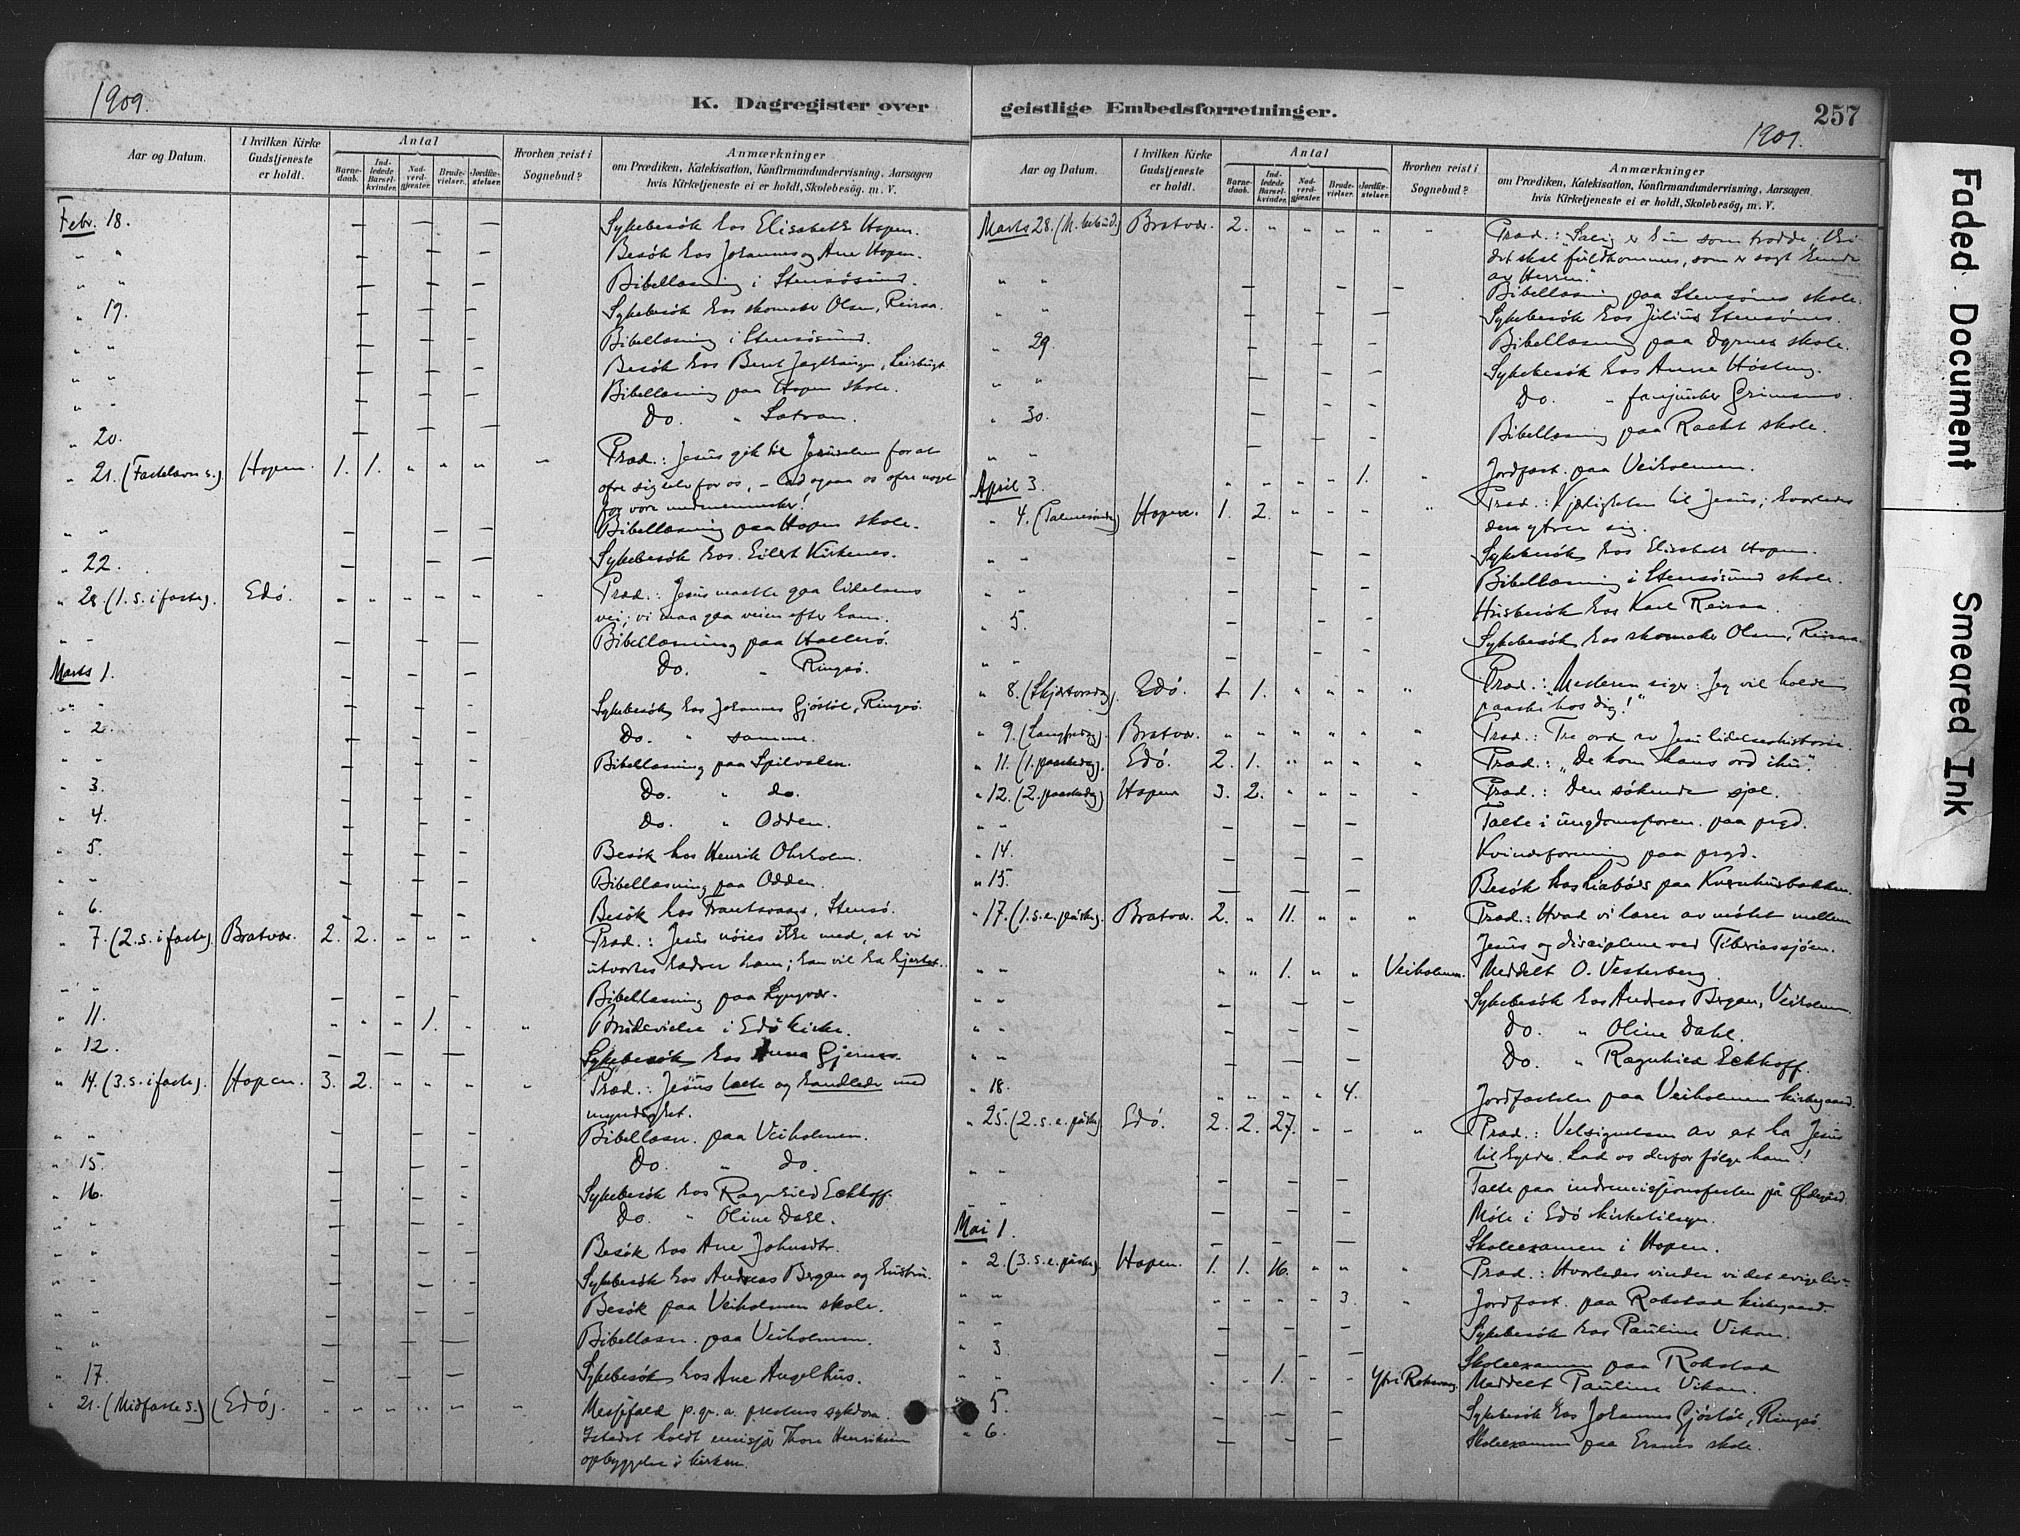 1909.
K. Dagregister over
Aar og Datum.
I hvilken Kirke Gudstjeneste er holdt.
Antal
Barne-daab.
Ind-ledede Barsel-kvinder.
Nad-verd-gjester.
Brude-vielser.
Jordfæ-stelser.
Hvorhen reist i Sognebud?
Anmærkninger
om Prædiken, Katekisation, Konfirmandundervisning, Aarsagen
hvis Kirketjeneste ei er holdt, Skolebesøg, m. V.
Febr. 18. – – – – – Sykebesök hos Elisabeth Hopen.
" " – – – – – Besök hos Johannes og Ane Hopen.
" " – – – – – Bibellæsning i Stensösund.
" 19. – – – – – Sykebesök hos skomaker Olsen, Reiraa.
" " – – – – – Bibellæsning i Stensösund.
" " – – – – – Besök hos Bent
" " – – – – – Bibellæsning paa Hopen skole.
" 20. – – – – – Do. "
" 21. (Fastelavn s.) Hopen. 1. 1. " " " " Præd.: Jesus gik til Jerusalem for at
ofre sig selv for os, – lad ogsaa os ofre noget
for vore medmennesker!
" " – – – – – Bibellæsning paa Hopen skole.
" 22. – – – – – Sykebesök hos Eilert Kirkenes.
" 28 (1. s. i faste). Edö. " " " " " " Præd.: Jesus maatte gaa lidelsens
vei; vi maa gaa veien efter ham.
" " – – – – – Bibellæsning paa
Marts 1. – – – – – Do. " Ringsö.
" " – – – – – Sykebesök hos Johannes Gjöstöl, Ringsö.
" 2. – – – – – Do. " samme.
" " – – – – – Bibellæsning paa
" 3. – – – – – Do. " do.
" 4. – – – – – Do. " Odden.
" 5. – – – – – Besök hos Henrik
" " – – – – – Bibellæsning paa Odden.
" 6. – – – – – Besök hos Frantsvaag, Stensö.
" 7. (2. s. i faste). Bratvær. 2. 2. " " " " Præd.: Jesus nöies ikke med, at vi
utvortes hædrer ham; han vil ha hjertet.
" " – – – – – Bibellæsning paa Lyngvær.
" 11. " " " 1. " " Brudevielse i Edö kirke.
" 12. – – – – – Sykebesök hos Anna Gjernes.
" 14. (3. s. i faste). Hopen. 3. 2. " " " " Præd.: Jesus talte og handlede med
myndighet.
" " – – – – – Bibellæsn. paa Veiholmen.
" 15. – – – – – Do. " do.
" 16. – – – – – Sykebesök hos Ragnhild Eckhoff.
" " – – – – – Do. " Oline Dahl.
" " – – – – – Besök hos Ane Johnsdtr.
" " – – – – – Sykebesök hos Andreas Bergan og hustru.
" " – – – – – Besök paa Veiholmen skole.
" " – – – – – Bibellæsn. paa Veiholmen.
" 17. – – – – – Sykebesök hos Ane Angelhus.
" 21. (Midfaste s.) (Edö). " " " " " " Messefald p. gr. a. prestens sykdom.
Istedet holdt emissær Thore Henriksen
opbyggelse i kirken.
geistlige Embedsforretninger.
257
1909.
Aar og Datum.
I hvilken Kirke Gudstjeneste er holdt.
Antal
Barne-daab.
Ind-ledede Barsel-kvinder.
Nad-verd-gjester.
Brude-vielser.
Jordfæ-stelser.
Hvorhen reist i Sognebud?
Anmærkninger
om Prædiken, Katekisation, Konfirmandundervisning, Aarsagen
hvis Kirketjeneste ei er holdt, Skolebesøg, m. V.
Marts 28. (M. bebud.) Bratvær. 2. " " " " " Præd.: "Salig er hun som trodde, thi
det skal fuldkommes, som er sagt hende
av Herren."
" " – – – Bibellæsning paa Stensönes skole.
" " – – – Sykebesök hos Julius Stensönes.
" 29. – – – Bibellæsning paa Dyrnes skole.
" " – – – Sykebesök hos Anne
" 30. – – – Do. " Grimsmo.
" " – – – Bibellæsning paa Raaket skole.
April 3. " " " " 1. " Jordfæst. paa Veiholmen.
" 4. (Palmesöndag) Hopen. 1. 2. " " " " Præd.: Kjærligheten til Jesus; hvorledes
den ytrer sig.
" " – – – Sykebesök hos Elisabeth Hopen.
" " – – – Bibellæsning i Stensösund skole.
" 5. – – – Husbesök hos Karl Reiraa.
" " – – – Sykebesök hos skomaker Olsen, Reiraa.
" 8. (Skjærtorsdag). Edö. 1. 1. " " " " Præd.: "Mesteren siger: Jeg vil holde
paaske hos dig!"
" 9. (Langfredag). Bratvær. " " " " " " Præd.: Tre ord av Jesu lidelseshistorie.
" 11. (1. paaskedag). Edö. 2. 1. " " " " Præd.: "De kom hans ord ihu".
" 12. (2. paaskedag) Hopen 3. 2. " " " " Præd.: Den sökende sjæl.
" " – – – Talte i ungdomsforen. paa prgd.
" 14. – – – Kvindeforening paa prgd.
" 15. – – – Besök hos Liaböes paa Kvernhusbakken.
" 17. (1. s. e. påske). Bratvær. 2. " 11. " " " Præd.: Hvad vi lærer av mötet mellem
Jesus og disciplene ved Tiberiassjöen.
" " " " 1. " " Veiholmen. Meddelt O. Vesterberg.
" " – – – Sykebesök hos Andreas Bergan, Veiholmen.
" " – – – Do. " Oline Dahl.
" " – – – Do. " Ragnhild Eckhoff.
" 18. " " " " 4. " Jordfæstelse paa Veiholmen kirkegaard.
" 25. (2. s. e. påske) Edö. 2. 2. 27. " " " Præd.: Velsignelsen av at ha Jesus
til hyrde. Lad os derfor følge ham!
" " – – – Talte paa indremissjonsfesten på
" " – – – Möte i Edö kirketilsyn.
Mai 1. – – – Skoleexamen i Hopen.
" 2. (3. s. e. påske) Hopen. 1. 1. 16. " " " Præd.: Hvorledes vinder vi det evige liv
" " " " " " 3. " Jordfæst. paa Rokstad kirkegaard.
" " – – – Sykebesök hos Pauline Vikan.
" 3. – – – Skoleexamen paa Rokstad
" " " " 1. " " Ytre Meddelt Pauline Vikan.
" 5. – – – Sykebesök hos Johannes Gjöstöl, Ringsö.
" 6. – – – Skoleexamen paa Ersnes skole.
Faded Document
Smeared Ink